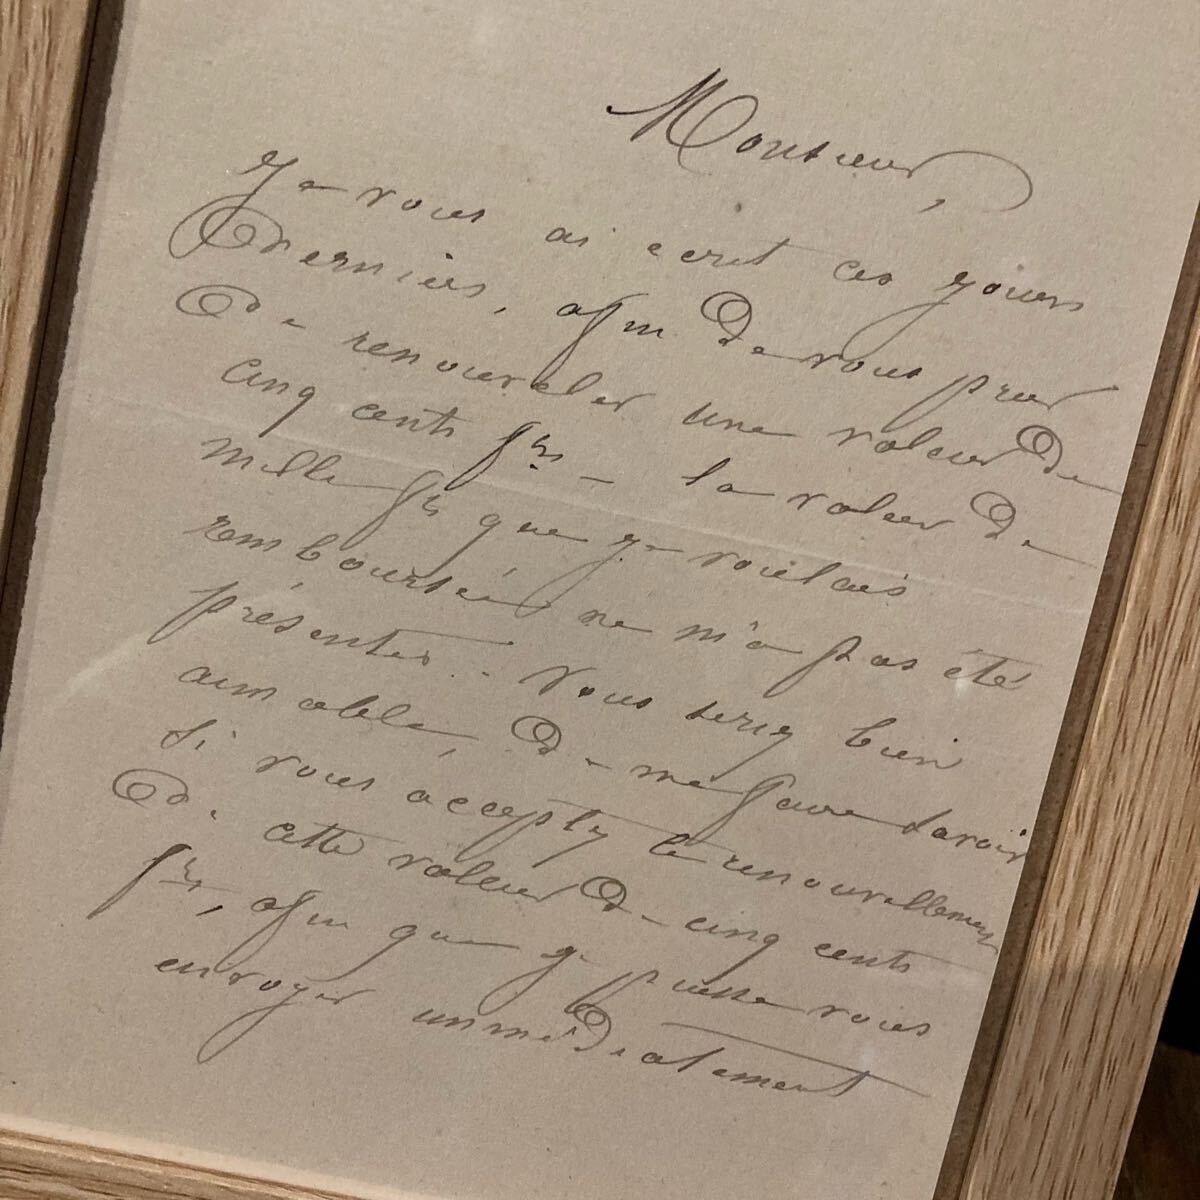 Monsieur,
Je vous ai écrit ces jours
derniers, afin de vous prier
de renouveler une valeur de
cinq cents frs – la valeur de
mille frs que je voulais
rembourser ne m'a pas été
présentée. Vous serez bien
aimable, de me faire savoir
si vous acceptez le renouvellement
de cette valeur de cinq cents
frs, afin que je puisse vous
envoyer immédiatement